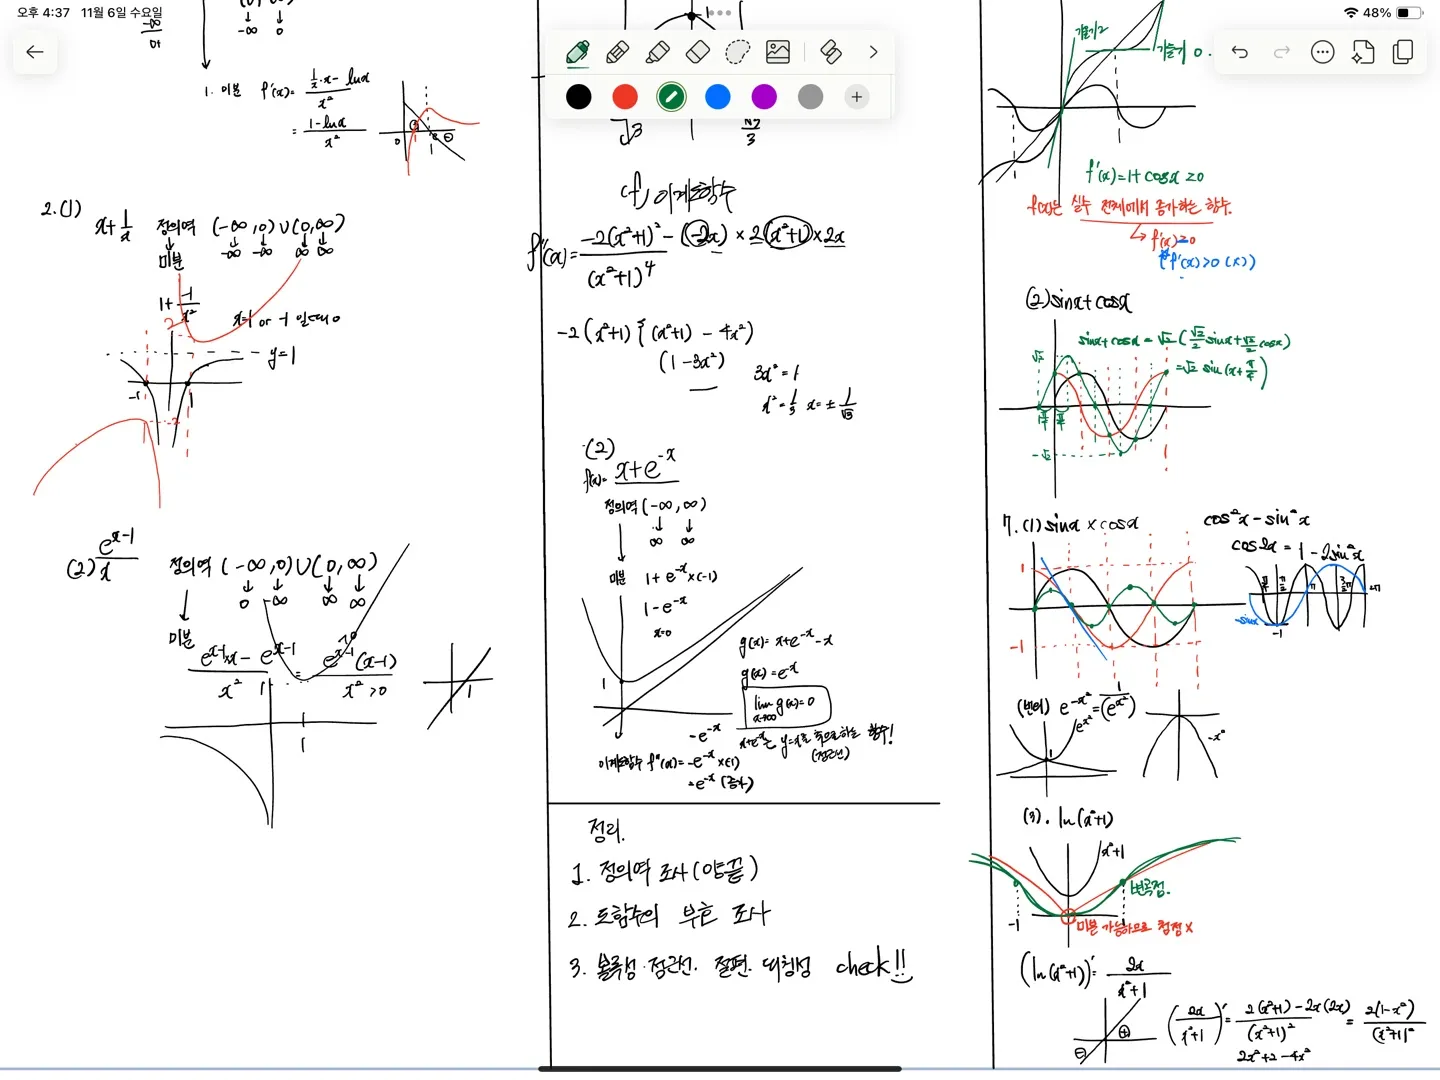 오후 4:37 11월 6일 수요일
48%
-∞ 0
1. 미분 f'(x)= (1/x·x - lnx)/x²
= (1-lnx)/x²
0 1
2.(1) x+1/x 정의역 (-∞,0)∪(0,∞)
↓ ↓ ↓ ↓ ↓
미분 -∞ -∞ ∞ ∞
1+ -1/x²
x=1 or -1 일때 0
2
y=1
-1 1
-2
(2) e^(x-1)/x 정의역 (-∞,0)∪(0,∞)
↓ ↓ ↓ ↓ ↓
0 -∞ ∞ ∞
미분
(e^(x-1)x - e^(x-1))/x² = e^(x-1)(x-1)/x² >0
1
1
1
√3/3
cf) 이계도함수
f''(x)= (-2(x²+1)² - (-2x) × 2(x²+1)×2x)/(x²+1)⁴
-2(x²+1){(x²+1) - 4x²)
(1-3x²)
3x²=1
x²=1/3 x=±1/√3
(2)
f(x)= x+e^-x
정의역 (-∞,∞)
↓ ↓
∞ ∞
미분 1+e^-x×(-1)
1-e^-x
x=0
1
g(x)= x+e^-x-x
g(x)=e^-x
lim g(x)=0
x→∞
x+e^-x는 y=x를 축으로하는 함수!
(점근선)
-e^-x
이계도함수 f''(x)= -e^-x×(-1)
=e^-x (증가)
정리.
1. 정의역 조사(양끝)
2. 도함수의 부호 조사
3. 볼록성·점근선·절편·대칭성 check!!
기울기2
기울기 0.
f'(x)=1+cosx≥0
f(x)는 실수 전체에서 증가하는 함수.
↳ f'(x)≥0
(f'(x)>0 (x))
(2) sinx+cosx
sinx+cosx = √2(√2/2 sinx+√2/2 cosx)
=√2 sin(x+π/4)
√2
-√2
7.(1) sinx×cosx
cos²x-sin²x
cos2x = 1-2sin²x
1
-1
-sinx
-1
2π
(번외) e^-x² = 1/(e^x²)
e^x²
1
-x²
(3). ln(x²+1)
x²+1
변곡점.
-1 1
미분 가능하므로 첨점 x
(ln(x²+1))' = 2x/(x²+1)
⊖ ⊕
(2x/(x²+1))' = (2(x²+1)-2x(2x))/(x²+1)² = 2(1-x²)/(x²+1)²
2x²+2-4x²